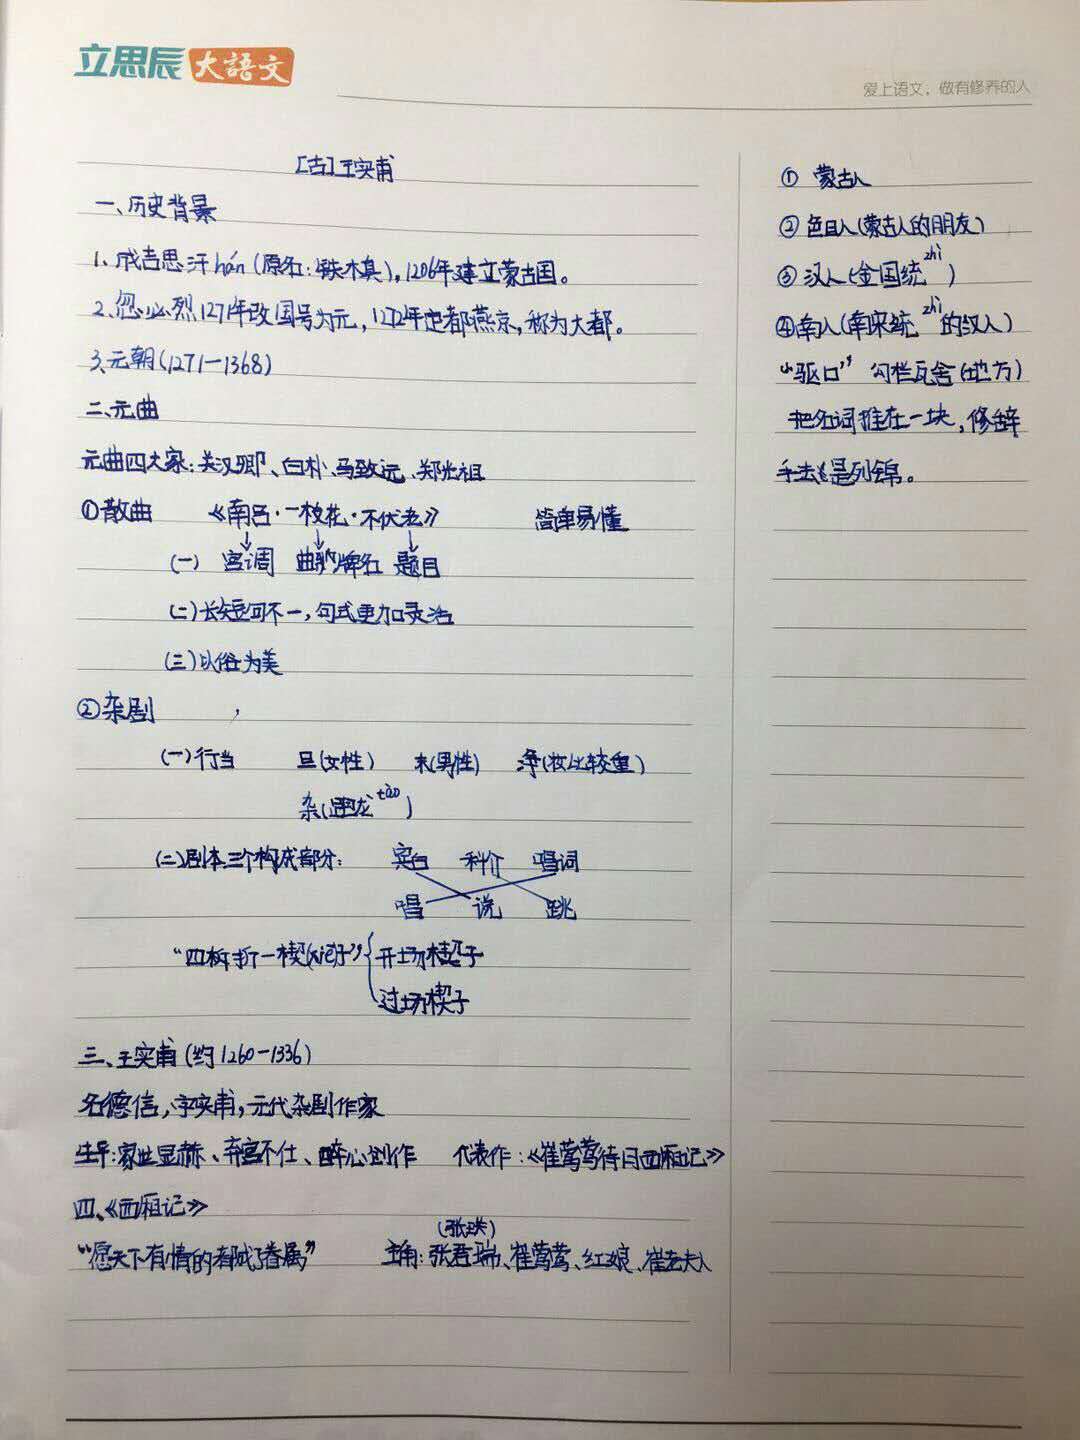 立思辰大語文
爱上语文，做有修养的人
[古]王实甫
一、历史背景
1、成吉思汗hán(原名:铁木真),1206年建立蒙古国。
2、忽必烈1271年改国号为元,1272年定都燕京,称为大都。
3、元朝(1271—1368)
二、元曲
元曲四大家:关汉卿、白朴、马致远、郑光祖
①散曲 《南吕·一枝花·不伏老》 简单易懂
(一) 宫调 曲牌名 题目
(二)长短句不一,句式更加灵活
(三)以俗为美
②杂剧
(一)行当 旦(女性) 末(男性) 净(妆比较重)
杂(跑龙tào)
(二)剧本三个构成部分: 宾白 科介 唱词
唱 说 跳
“四折一楔(xiē)子” 开场楔子
过场楔子
三、王实甫(约1260-1336)
名德信,字实甫,元代杂剧作家
生平:家世显赫、弃官不仕、醉心创作 代表作:《崔莺莺待月西厢记》
四、《西厢记》
(张珙)
“愿天下有情的都成了眷属” 主角:张君瑞、崔莺莺、红娘、崔老夫人
① 蒙古人
②色目人(蒙古人的朋友)
③汉人(金国统zhì)
④南人(南宋统zhì的汉人)
“驱口” 勾栏瓦舍(地方)
把名词堆在一块,修辞
手法是列锦。